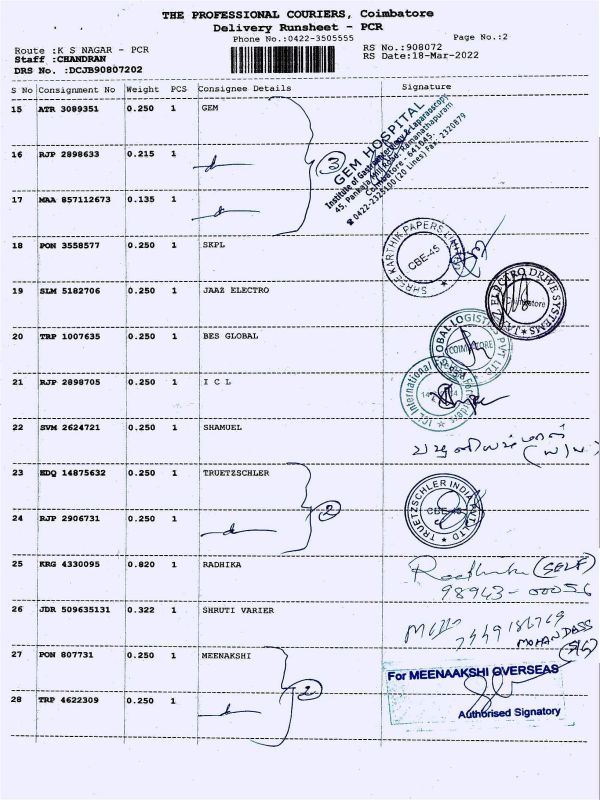 THE PROFESSIONAL COURIERS, Coimbatore
Delivery Runsheet - PCR
Phone No.:0422-3505555 Page No.:2
Route :K S NAGAR - PCR RS No.:908072
Staff :CHANDRAN RS Date:18-Mar-2022
DRS No. :DCJB90807202
S No Consignment No Weight PCS Consignee Details Signature
15 ATR 3089351 0.250 1 GEM
GEM HOSPITAL
Institute of Gastroenterology & Laparoscopy
45, Pankaja Mill Road, Ramanathapuram
Coimbatore - 641045.
☎ 0422-2325100 (20 Lines) Fax: 2320879
16 RJP 2898633 0.215 1
3
17 MAA 857112673 0.135 1
18 PON 3558577 0.250 1 SKPL
SHREE KARTHIK PAPERS LIMITED
CBE-45
19 SLM 5182706 0.250 1 JAAZ ELECTRO
JAAZ ELECTRO DRIVE SYSTEMS
Coimbatore
20 TRP 1007635 0.250 1 BES GLOBAL
GLOBAL LOGISTICS PVT LTD
COIMBATORE
21 RJP 2898705 0.250 1 I C L
ICL International
22 SVM 2624721 0.250 1 SHAMUEL
23 KDQ 14875632 0.250 1 TRUETZSCHLER
TRUETZSCHLER INDIA PVT LTD
CBE-45
2
24 RJP 2906731 0.250 1
25 KRG 4330095 0.820 1 RADHIKA
Radhika (SELF)
98943-00056
26 JDR 509635131 0.322 1 SHRUTI VARIER
MOHANDASS
27 PON 807731 0.250 1 MEENAKSHI
For MEENAAKSHI OVERSEAS
2
28 TRP 4622309 0.250 1
Authorised Signatory